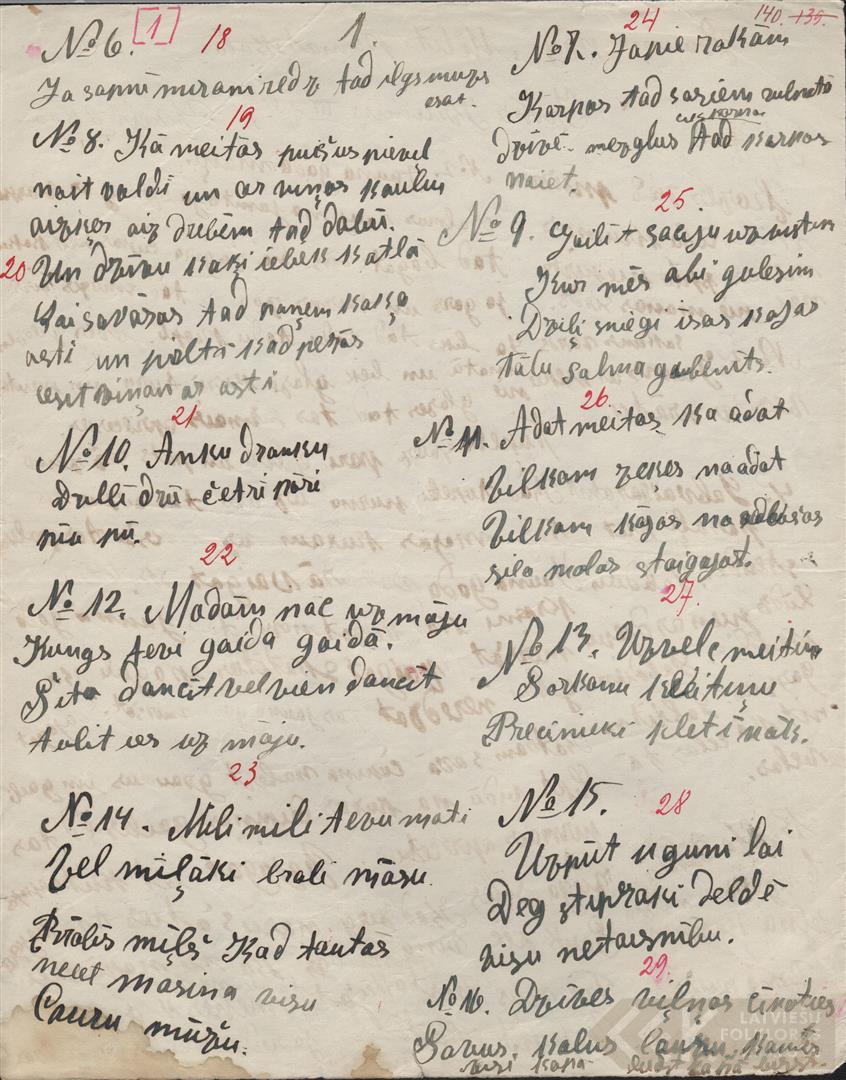 140. 135.
[1] 1.
№ 6. 18
Ja sapnī mirani redz tad ilgs mužs
esat.
19
№ 8. Kā meitas puišus pievel
nait valdi un ar viņas kaulu
aizķer aiz drēbēm tad dabū.
20 Un dzīvu kaķi iebēk katlā
Lai savāras tad naņem kaķa
asti un pielti kad pešās
cesit viņan ar asti
21
№ 10. Anku dranku
Dulli drū četri pāri
pū pū.
22
№ 12. Madām nāc uz māju
Kungs tevi gaida gaidā.
Šita dancīt vel vien dancīt
Tulit ies uz māju.
23
№ 14. Mili mili tevu mati
Vel miļāki brali māsu
Brālis mīļš Kad tautās
neiet māsiņa visu
Cauru mūžu.
24
№ 7. Ja pie rokām
Karpas tad sasiem
dzīvē mezglus tad karpas
naiet.
25.
№ 9. Gaili
Kur mēs abi gulēsim
Dziļi sniegi īsas kājas
Tālu salma gubenits.
26.
№ 11. Adat meitas ka adat
Vilkam zeķes na adat
Vilkam kājas na
sila malas staigajot.
27.
№ 13. Uzvelc meitiņ
Sorkanu
Precinieki kletī nāks.
№ 15. 28
Uzpūt uguni lai
Deg stiprāki Deldē
visu netaisnību.
29.
№ 16. Dzīves viļņas cīnoties
Savus. kalus lauzu
visi kapā
LATVIEŠU
FOLKLORAS